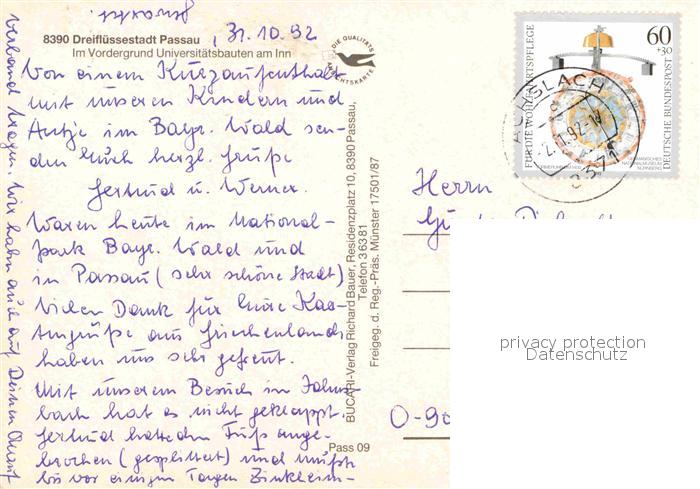 Prosit!
8390 Dreiflüssestadt Passau , 31.10.92
Im Vordergrund Universitätsbauten am Inn
DIE QUALITÄTS
ANSICHTSKARTE
Von einem Kurzaufenthalt
mit unseren Kindern und
Antje im Bayr. Wald sen-
den Euch herzl. Grüße
Gertrud u. Werner.
Waren heute im National-
park Bayr. Wald und
in Passau (sehr schöne Stadt)
Vielen Dank für Eure Kar-
tengrüße aus Griechenland
haben uns sehr gefreut.
Mit unserem Besuch in
bach hat es nicht geklappt.
Gertrud hatte den Fuß ange-
brochen (gesplittert) und mußte
bis vor einigen Tagen Zinkleim-
verband tragen. Wir haben auch auf Deinen
BUCARI-Verlag Richard Bauer, Residenzplatz 10, 8390 Passau,
Telefon 3 63 81
Freigeg. d. Reg.-Präs. Münster 17501/87
Pass 09
FÜR DIE WOHLFAHRTSPFLEGE
60
+30
DEUTSCHE BUNDESPOST
GERMANISCHES
NATIONALMUSEUM
NÜRNBERG
Herrn
O-90
privacy protection
Datenschutz